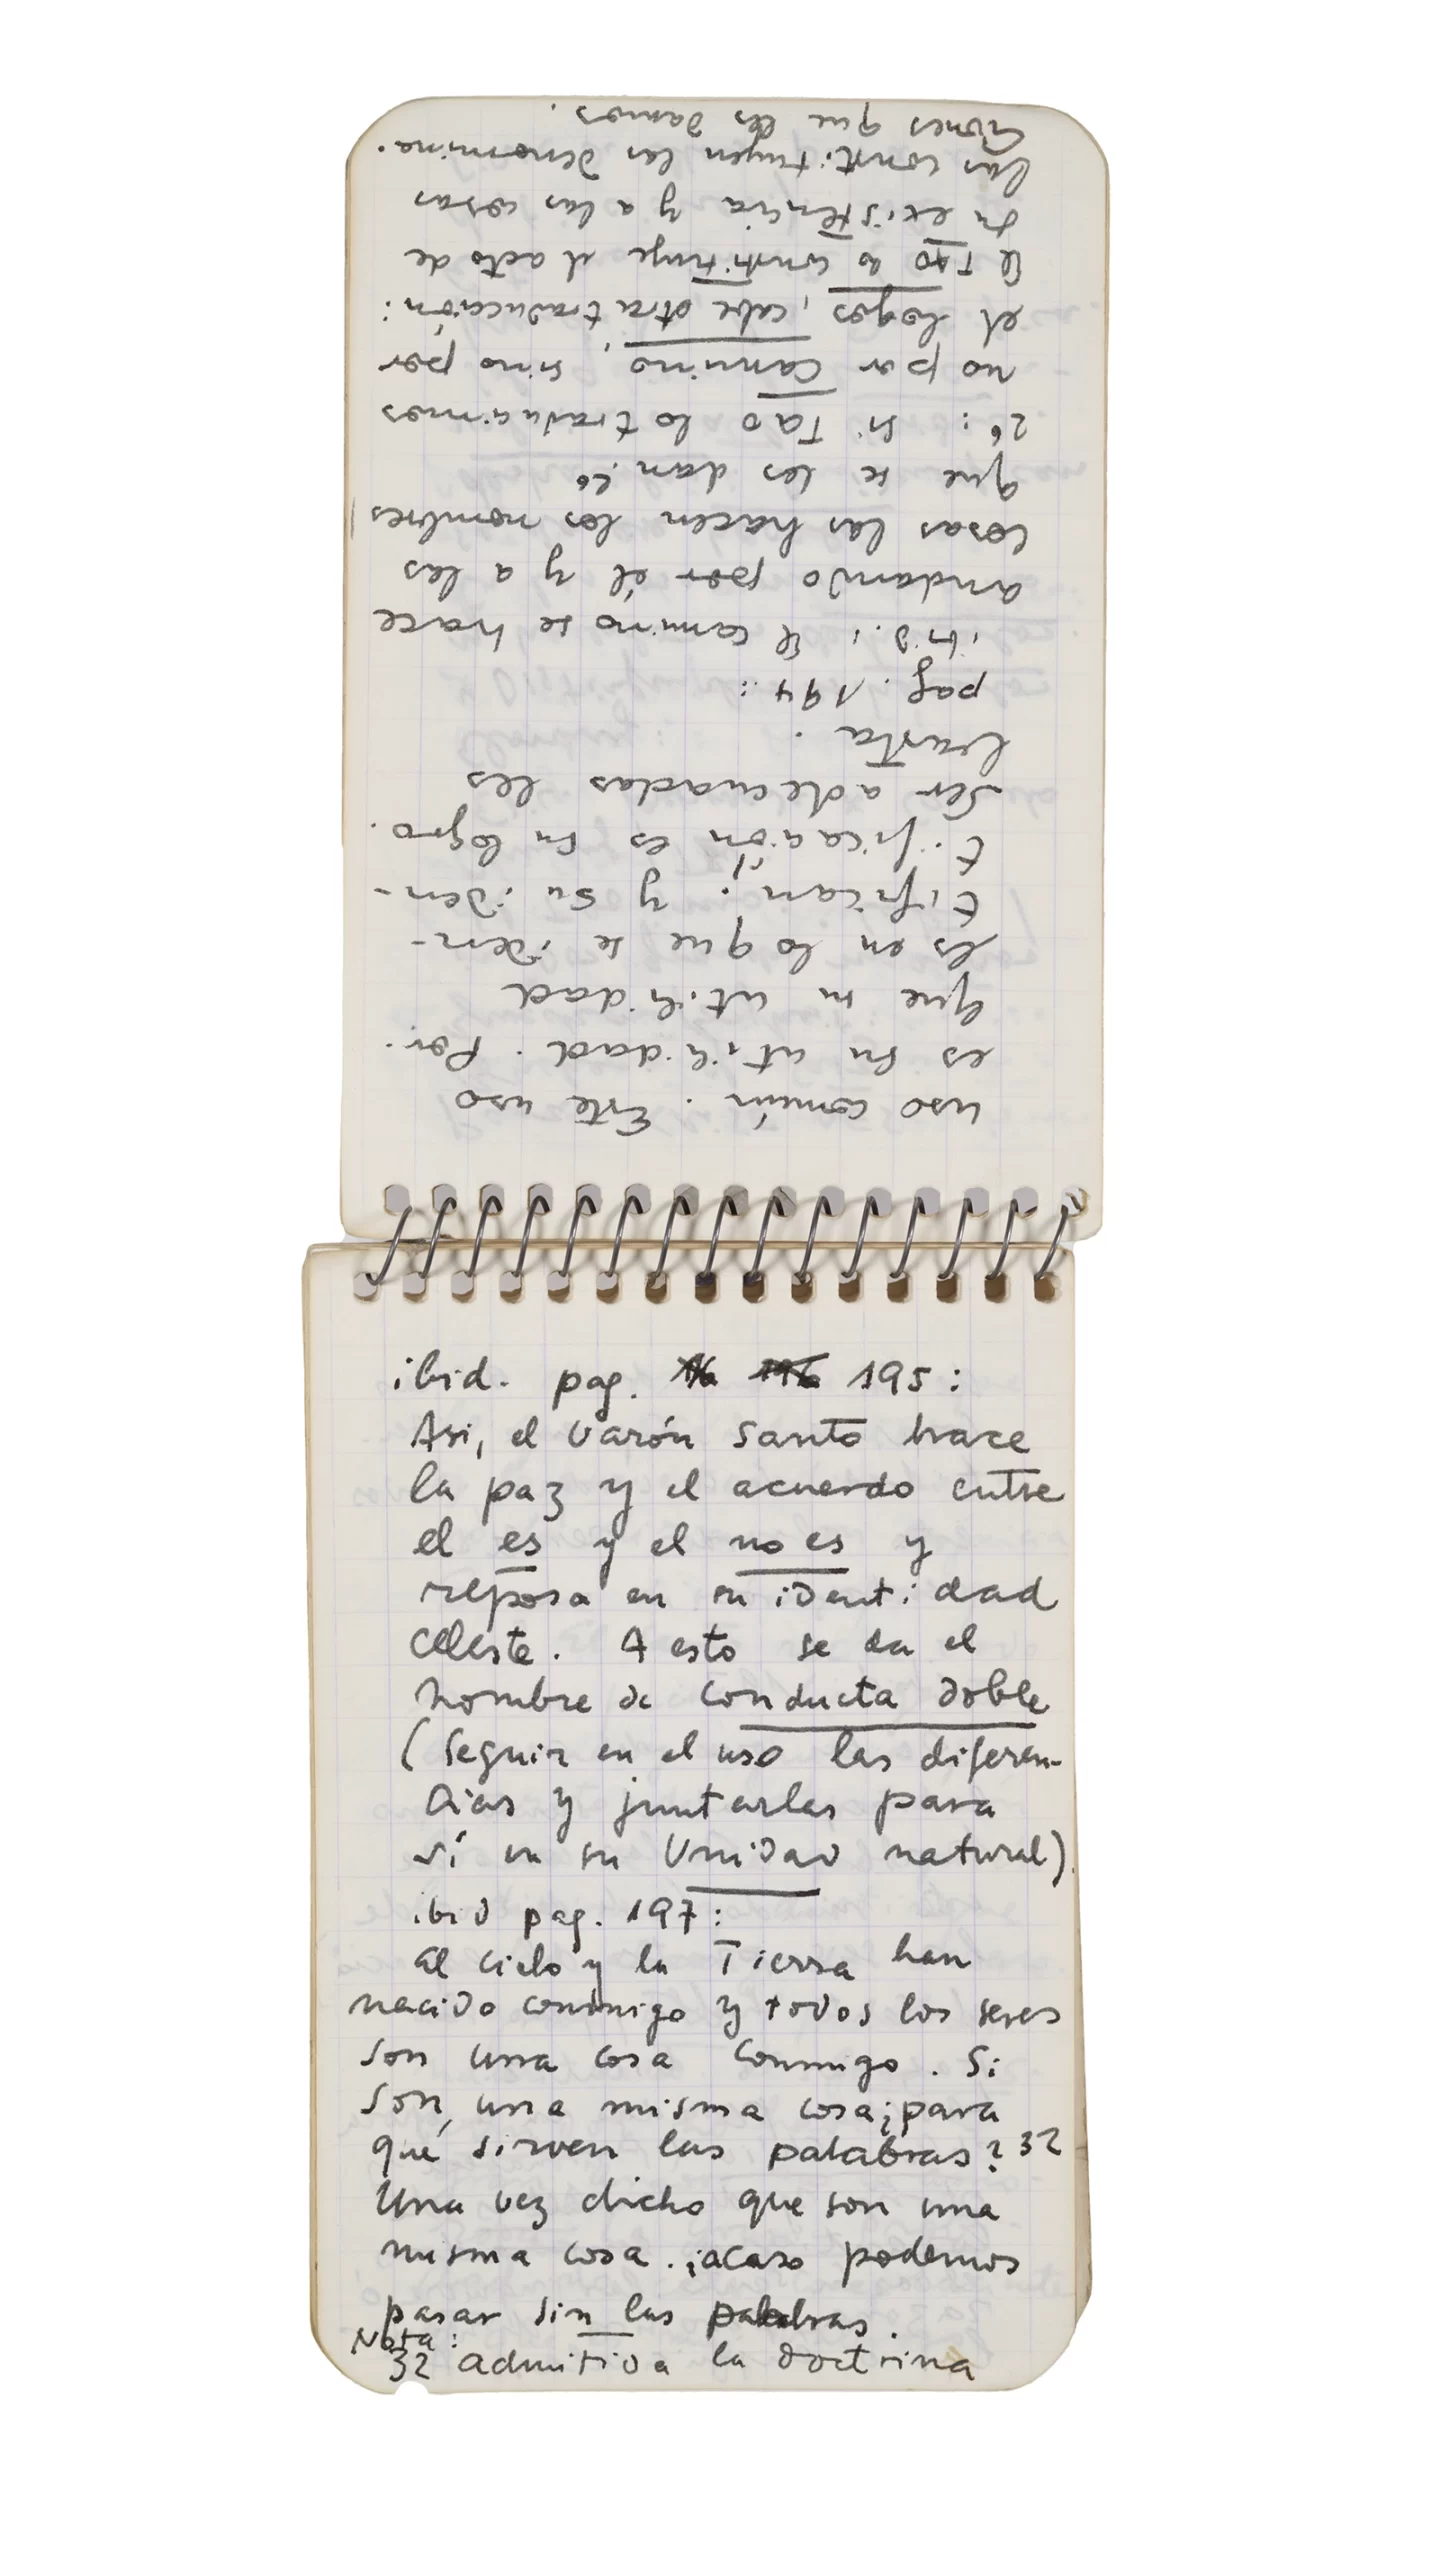 uso común. Este uso
es su utilidad. Por-
que su utilidad
es en lo que se iden-
tifican; y su iden-
tificación es su logro.
Ser adecuadas les
basta.
pag. 194:
ibid., El camino se hace
andando por él y a las
cosas las hacen los nombres
que se les dan. 26
26: si Tao lo traducimos
no por camino, sino por
el logos, cabe otra traducción:
El Tao lo constituye el acto de
su existencia y a las cosas
las constituyen las denomina-
ciones que les damos.
ibid. pag. 195:
Asi, el varón santo hace
la paz y el acuerdo entre
el es y el no es y
reposa en su identidad
celeste. A esto se da el
nombre de conducta doble
(Seguir en el uso las diferen-
cias y juntarlas para
sí en su Unidad natural)
ibid pag. 197:
al cielo y la Tierra han
nacido conmigo y todos los seres
son una cosa conmigo. Si
son una misma cosa ¿para
qué sirven las palabras? 32
Una vez dicho que son una
misma cosa. ¿acaso podemos
pasar sin las palabras.
Nota:
32 admitida la doctrina